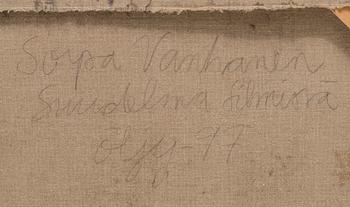 Sorja Vanhanen
Suudelma filmissä
öljy -77